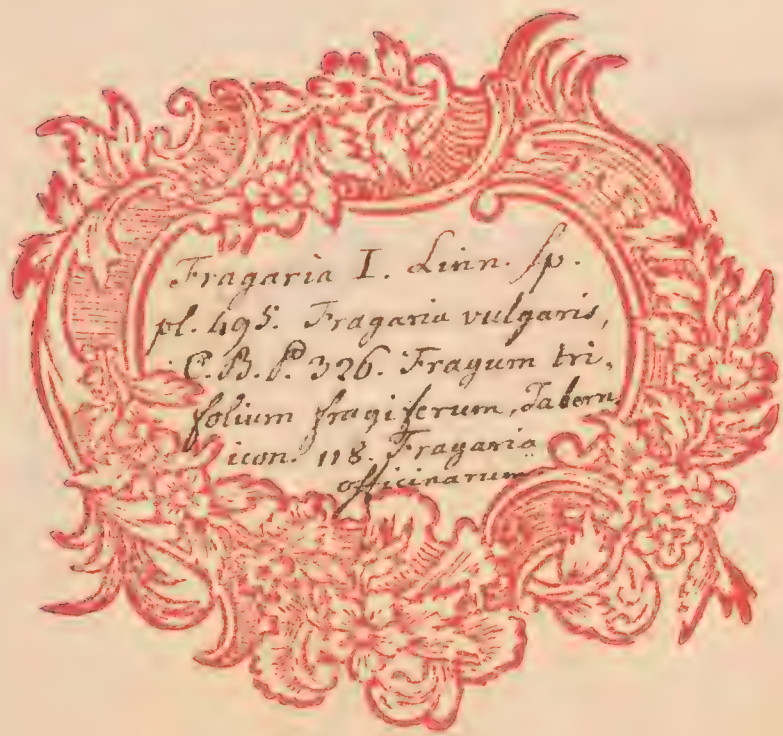 Fragaria I. Linn. sp.
pl. 495. Fragaria vulgaris,
C. B. P. 326. Fragum tri-
folium fragiferum, Tabern.
icon. 118. Fragaria
officinarum